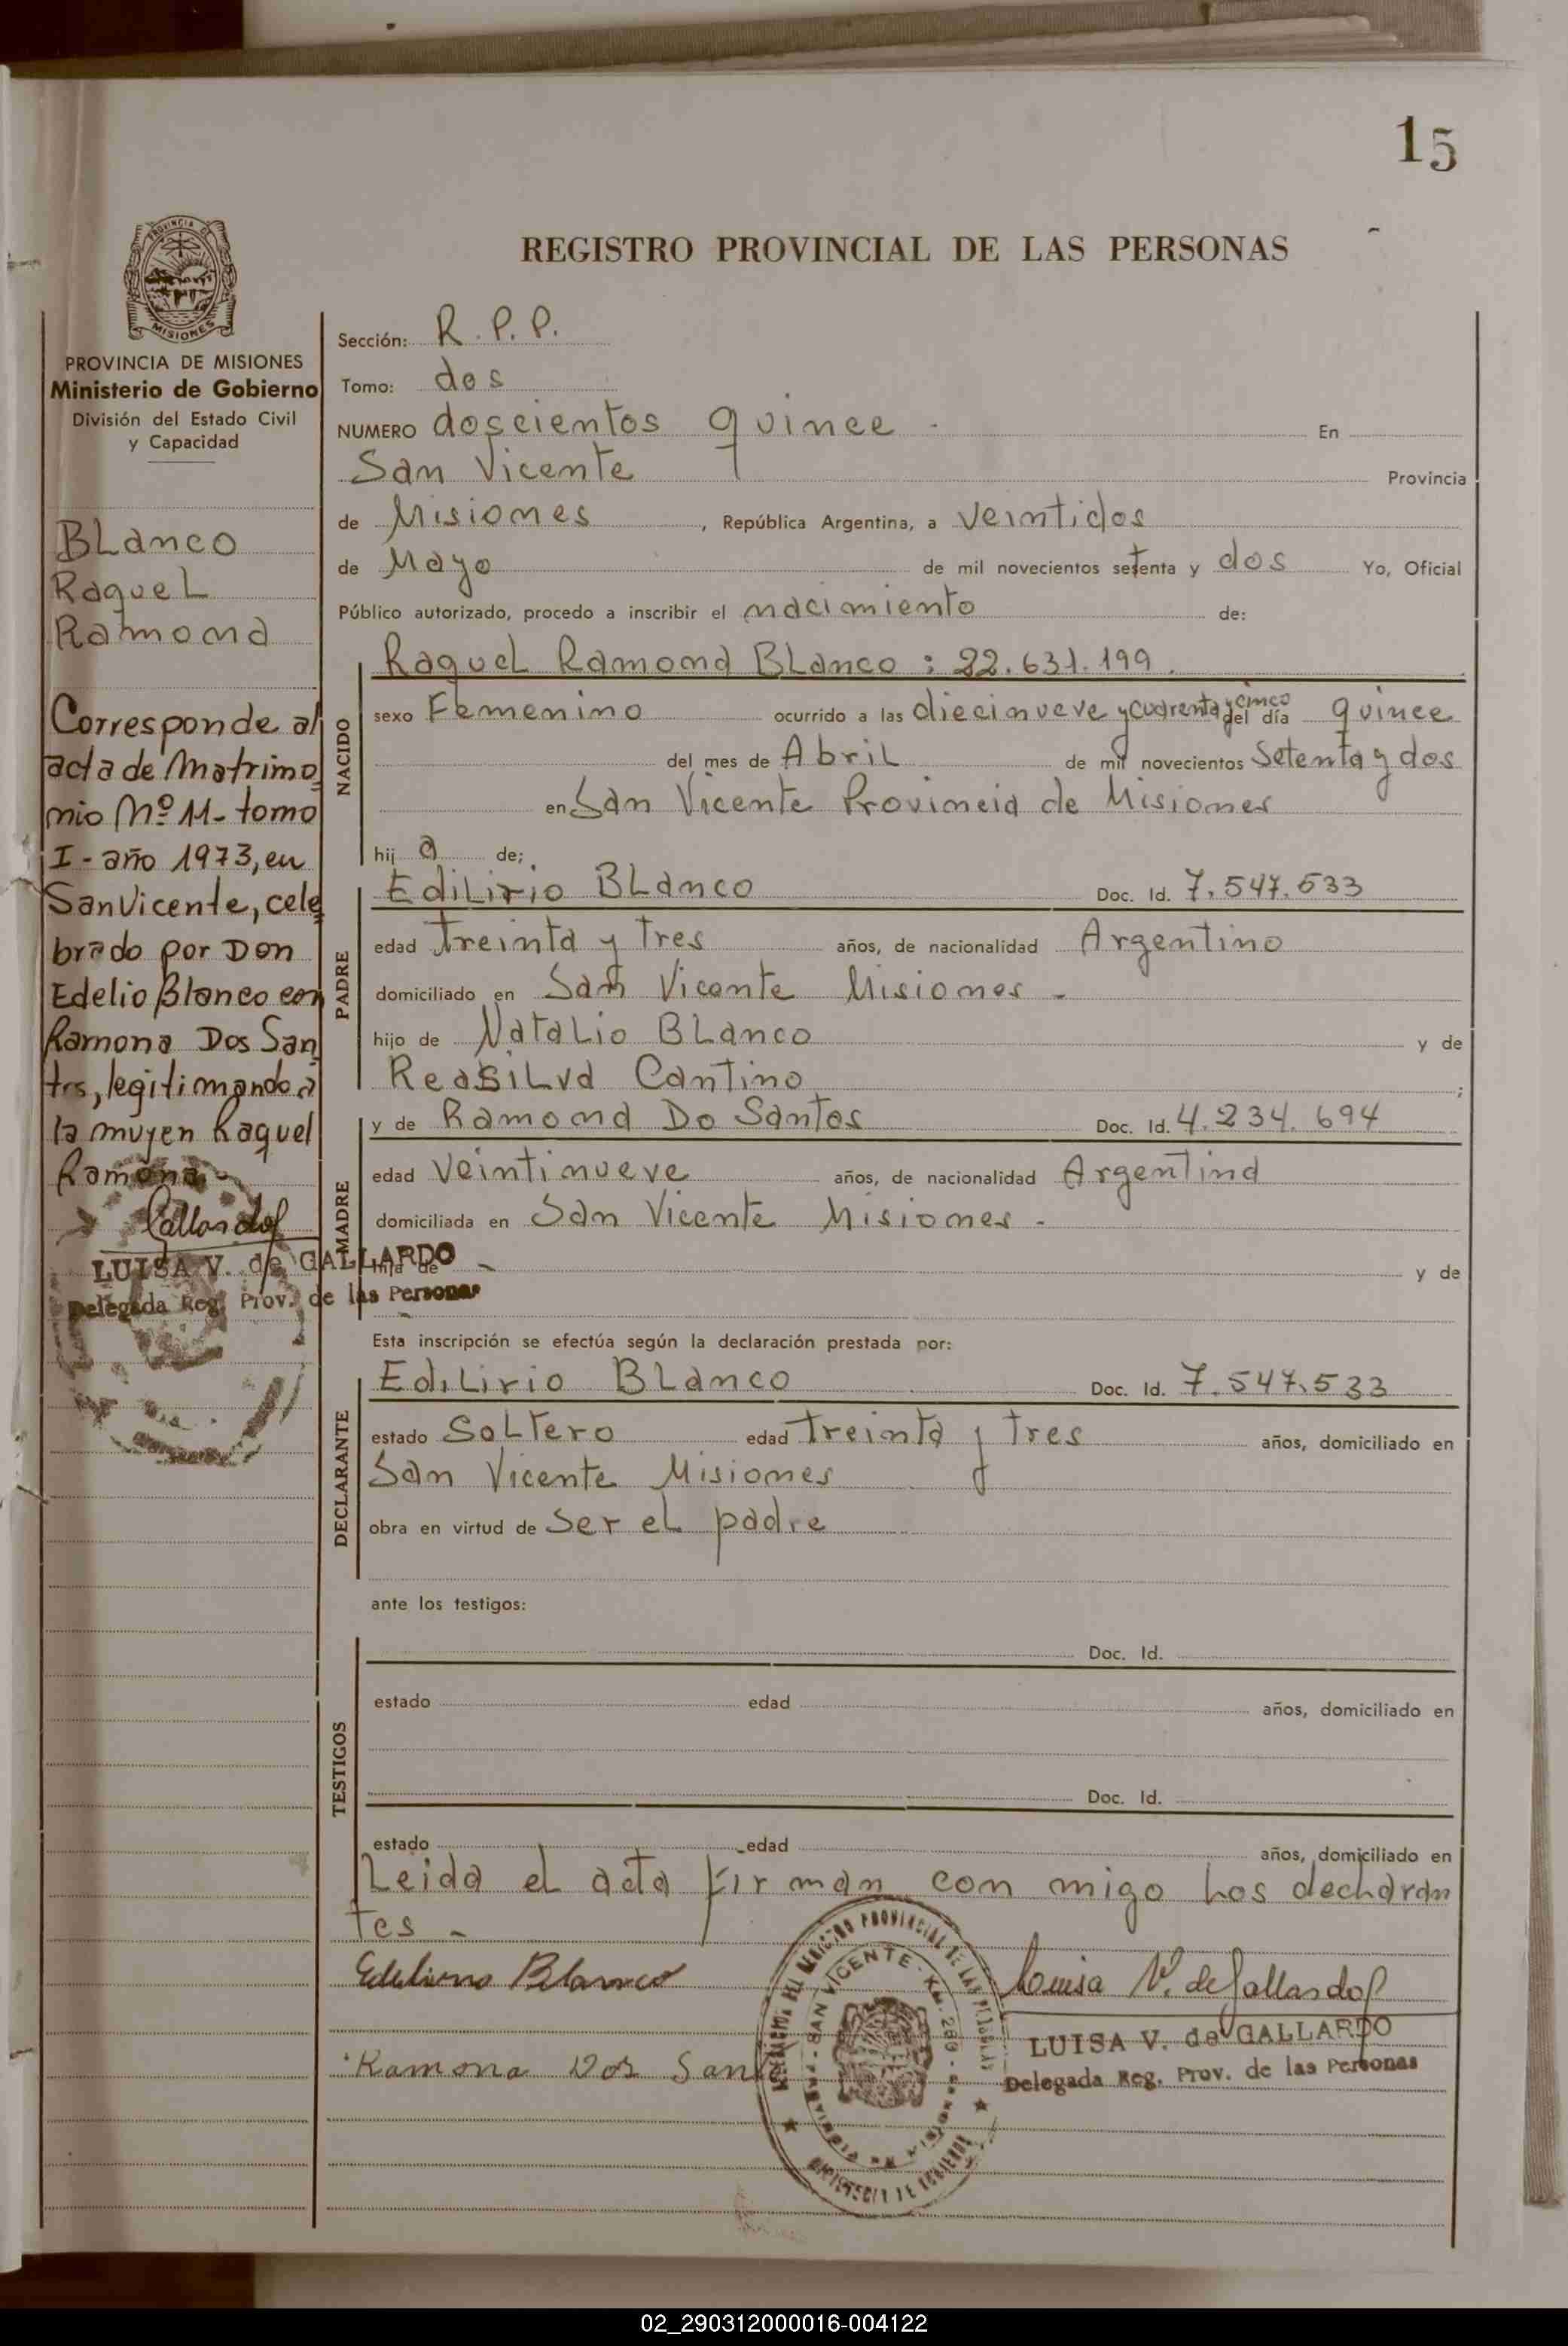 15
REGISTRO PROVINCIAL DE LAS PERSONAS
PROVINCIA DE MISIONES
PROVINCIA DE MISIONES
Ministerio de Gobierno
División del Estado Civil
y Capacidad
BLanco
RaqueL
Ramona
Corresponde al
acta de Matrimo
nio Nº 11- tomo
I - año 1973, en
San Vicente, cele
brado por Don
Edelio Blanco con
Ramona Dos San
tos, legitimando a
la mujer Raquel
Ramona
Gallardo
LUISA V. de GALLARDO
Delegada Reg. Prov. de las Personas
Sección: R. P. P.
Tomo: dos
NUMERO doscientos quince - En
San Vicente Provincia
de Misiones, República Argentina, a veintidos
de Mayo de mil novecientos setenta y dos Yo, Oficial
Público autorizado, procedo a inscribir el nacimiento de:
NACIDO
RaqueL Ramona BLanco : 22.631.199.
sexo Femenino ocurrido a las diecinueve y cuarenta y cinco del día quince
del mes de AbriL de mil novecientos Setenta y dos
en San Vicente Provincia de Misiones
hij a de;
PADRE
EdiLirio BLanco Doc. Id. 7.547.533
edad treinta y tres años, de nacionalidad Argentino
domiciliado en San Vicente Misiones -
hijo de NataLio BLanco y de
ReasiLva Cantino ;
MADRE
y de Ramona Do Santos Doc. Id. 4.234.694
edad veintinueve años, de nacionalidad Argentina
domiciliada en San Vicente Misiones -
hija de - y de
Esta inscripción se efectúa según la declaración prestada por:
DECLARANTE
EdiLirio BLanco Doc. Id. 7.547.533
estado SoLtero edad treinta y tres años, domiciliado en
San Vicente Misiones
obra en virtud de ser eL padre
ante los testigos:
TESTIGOS
Doc. Id.
estado edad años, domiciliado en
Doc. Id.
estado edad años, domiciliado en
Leida eL acta firman con migo Los declaran
tes -
Blanco
Luisa V. de Gallardo
LUISA V. de GALLARDO
Delegada Reg. Prov. de las Personas
Ramona Dos Santo
PROVINCIAL DE LAS
SAN VICENTE - Km. 280 -
02_290312000016-004122